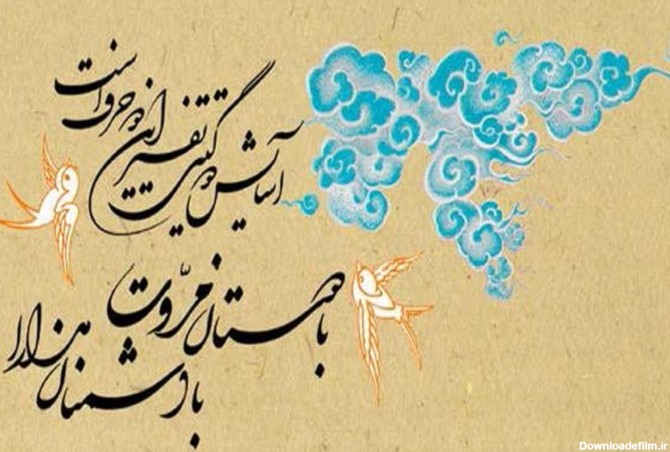 آسایش دو گیتی تفسیر این دو حرف است
با دوستان مروّت
با دشمنان مدارا
Downloadefilm.ir